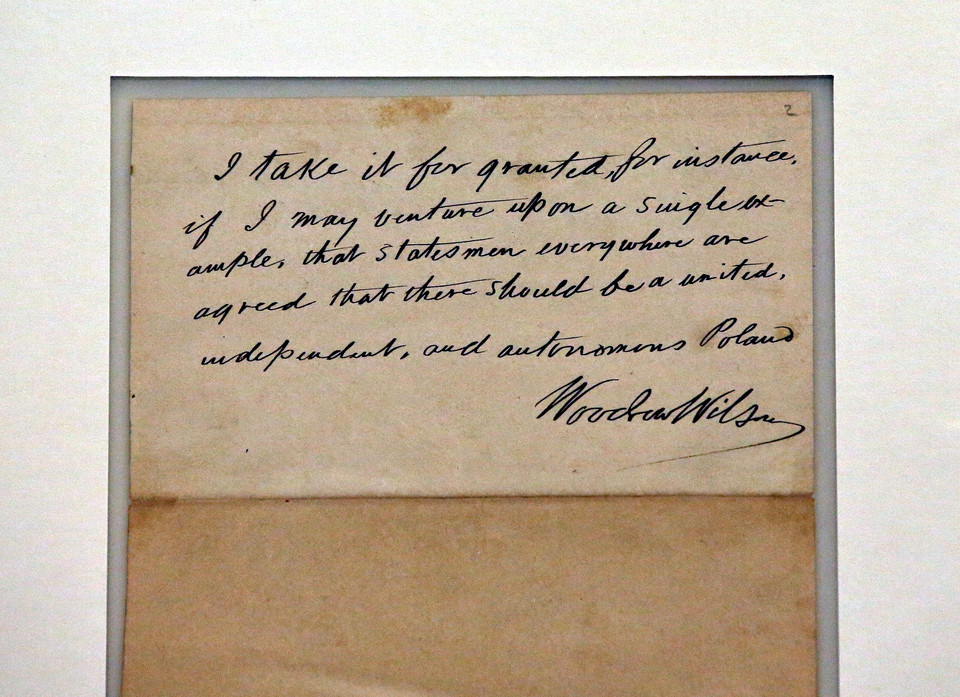 2
I take it for granted, for instance,
if I may venture upon a single ex-
ample, that statesmen everywhere are
agreed that there should be a united,
independent, and autonomous Poland
Woodrow Wilson